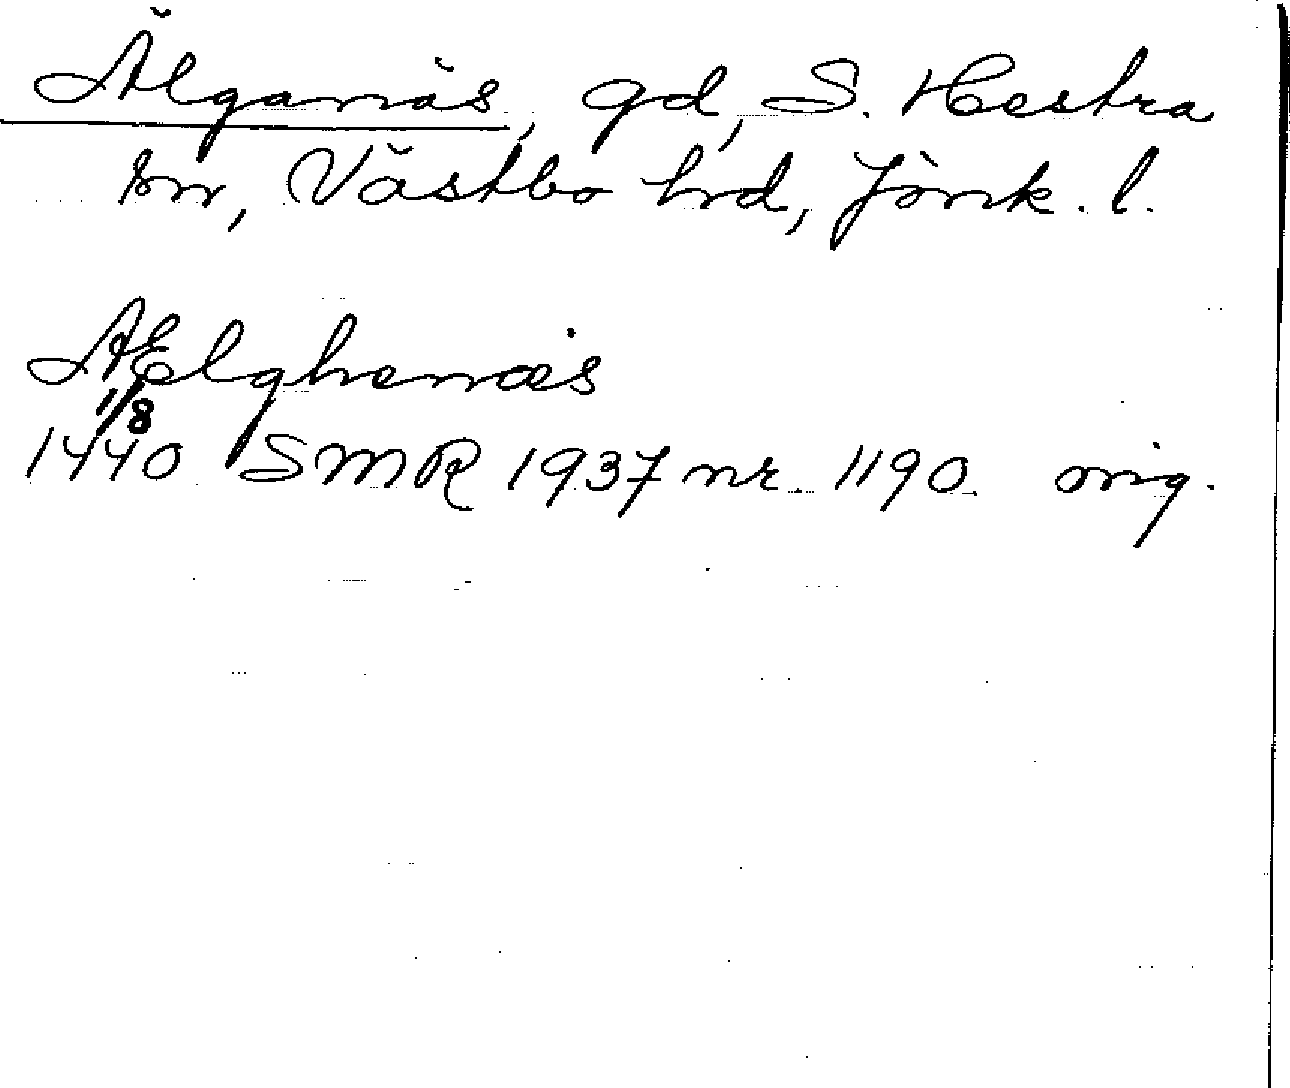 Älganäs, gd, S. Hestra
sn, Västbo hrd, Jönk. l.
AElghenæs
1/8
1440 SMR 1937 nr 1190 orig.